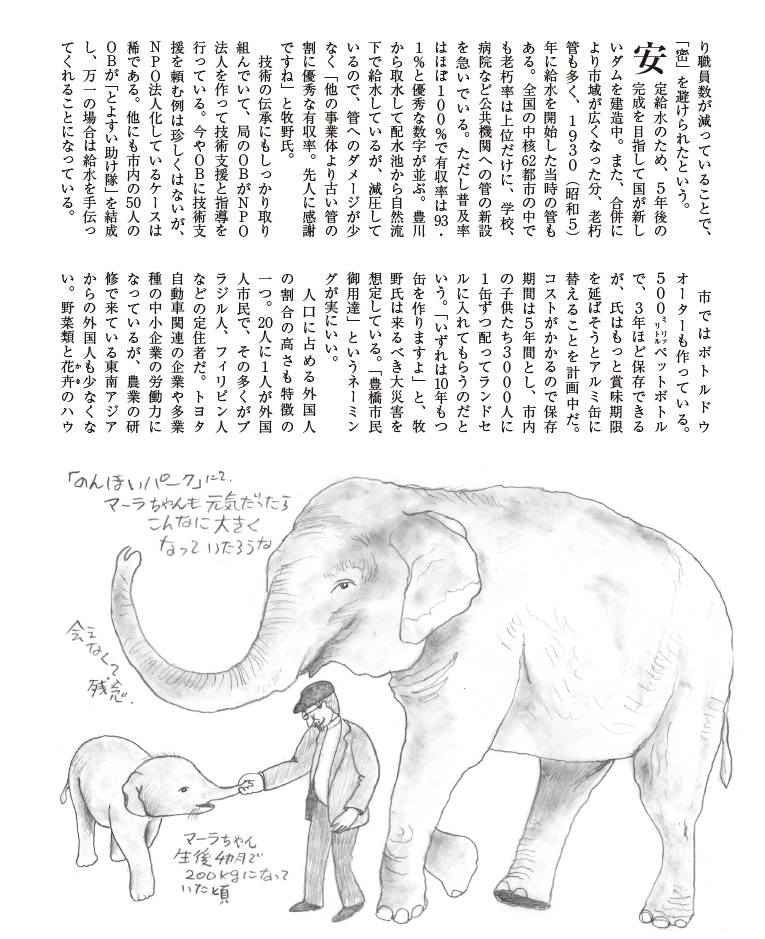 り職員数が減っていることで、
「密」を避けられたという。
安定給水のため、5年後の
完成を目指して国が新し
いダムを建造中。また、合併に
より市域が広くなった分、老朽
管も多く、1930(昭和5)
年に給水を開始した当時の管も
ある。全国の中核62都市の中で
も老朽率は上位だけに、学校、
病院など公共機関への管の新設
を急いでいる。ただし普及率
はほぼ100%で有収率は93・
1%と優秀な数字が並ぶ。豊川
から取水して配水池から自然流
下で給水しているが、減圧して
いるので、管へのダメージが少
なく「他の事業体より古い管の
割に優秀な有収率。先人に感謝
ですね」と牧野氏。
技術の伝承にもしっかり取り
組んでいて、局のOBがNPO
法人を作って技術支援と指導を
行っている。今やOBに技術支
援を頼む例は珍しくはないが、
NPO法人化しているケースは
稀である。他にも市内の50人の
OBが「とよすい助け隊」を結成
し、万一の場合は給水を手伝っ
てくれることになっている。
市ではボトルドウ
オーターも作っている。
500ミリリットルペットボトル
で、3年ほど保存できる
が、氏はもっと賞味期限
を延ばそうとアルミ缶に
替えることを計画中だ。
コストがかかるので保存
期間は5年間とし、市内
の子供たち3000人に
1缶ずつ配ってランドセ
ルに入れてもらうのだと
いう。「いずれは10年もつ
缶を作りますよ」と、牧
野氏は来るべき大災害を
想定している。「豊橋市民
御用達」というネーミン
グが実にいい。
人口に占める外国人
の割合の高さも特徴の
一つ。20人に1人が外国
人市民で、その多くがブ
ラジル人、フィリピン人
などの定住者だ。トヨタ
自動車関連の企業や多業
種の中小企業の労働力に
なっているが、農業の研
修で来ている東南アジア
からの外国人も少なくな
い。野菜類と花卉かきのハウ
「のんほいパーク」にて。
マーラちゃんも元気だったら
こんなに大きく
なっていたろうな
会え
なくて
残念。
マーラちゃん
生後4カ月で
200kgになって
いた頃